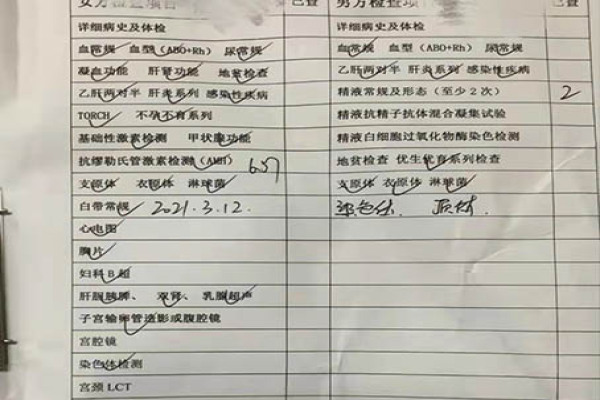 女方检查项目 已查 男方检查项 已查
详细病史及体检 详细病史及体检
血常规 血型（ABO+Rh） 尿常规 血常规 血型（ABO+Rh） 尿常规
凝血功能 肝肾功能 地贫检查 乙肝两对半 肝炎系列 感染性疾病
乙肝两对半 肝炎系列 感染性疾病 精液常规及形态（至少2次） 2
TORCH 不孕不育系列 精液抗精子抗体混合凝集试验
基础性激素检测 甲状腺功能 精液白细胞过氧化物酶染色检测
抗缪勒氏管激素检测（AMH） 6.57 地贫检查 优生优育系列检查
支原体 衣原体 淋球菌 支原体 衣原体 淋球菌
白带常规 2021.3.12. 染色体.
心电图
胸片
妇科B超
肝胆胰脾、 双肾、 乳腺超声
子宫输卵管造影或腹腔镜
宫腔镜
染色体检测
宫颈LCT